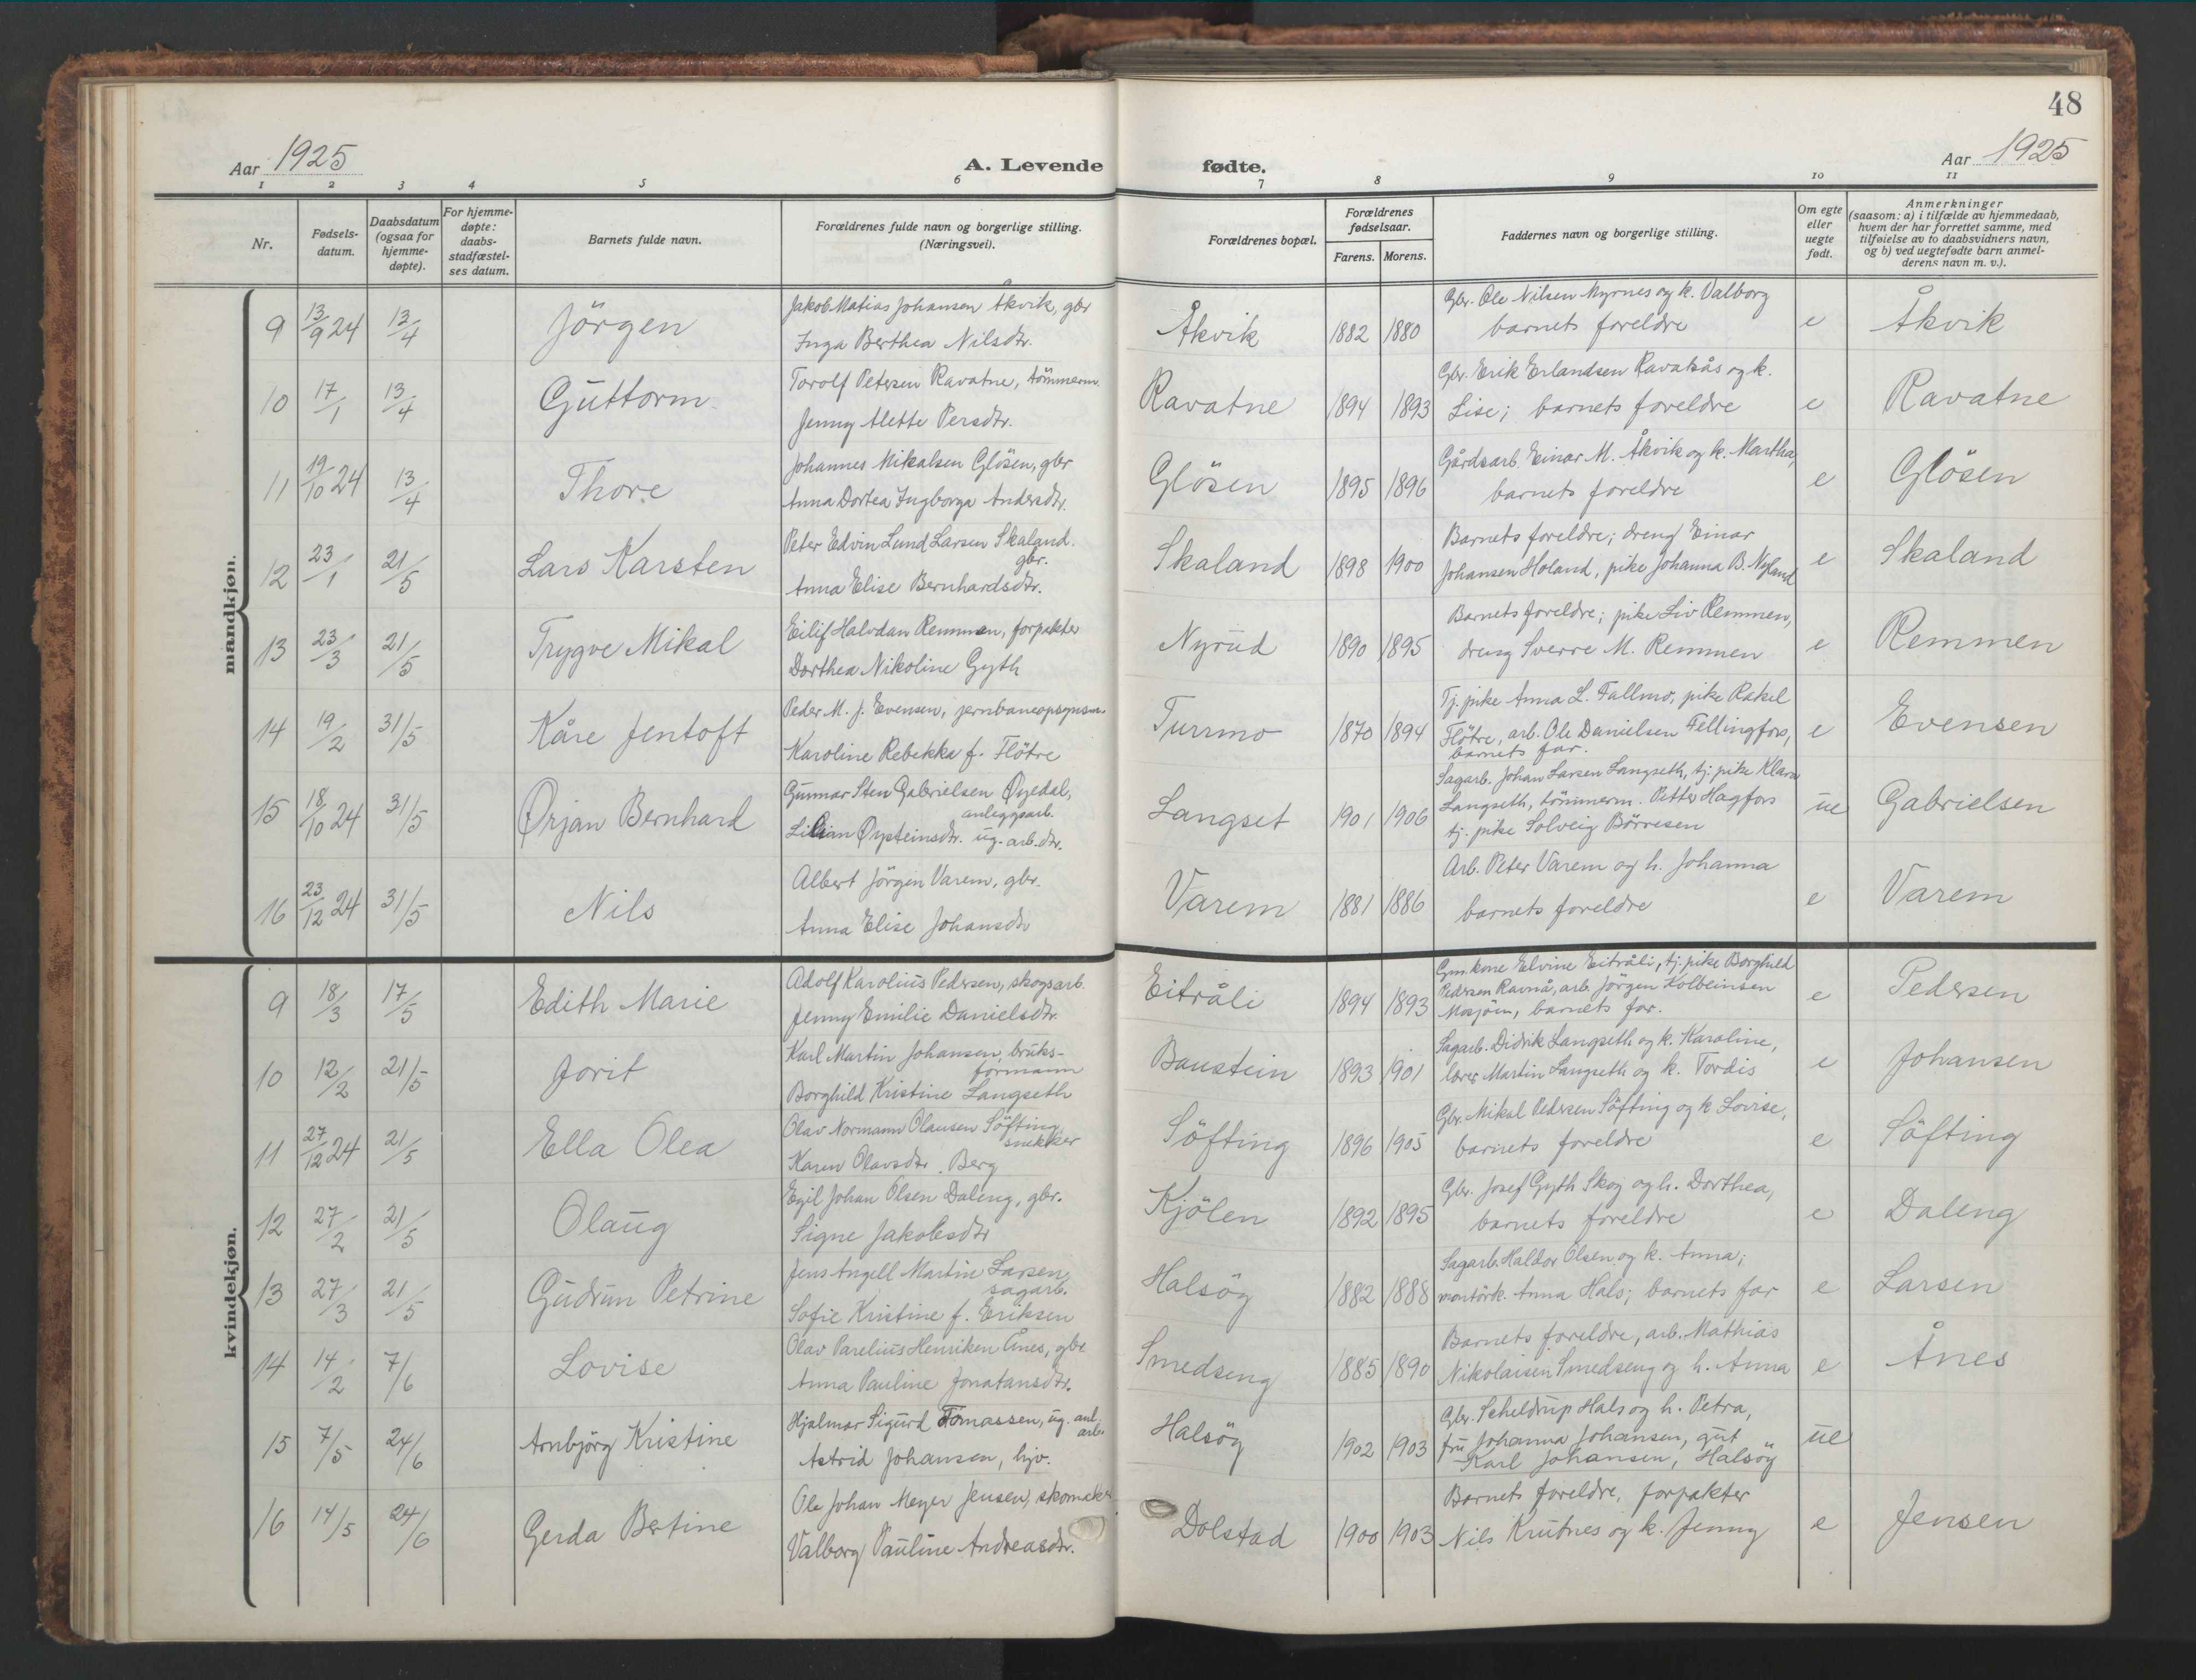 48
Aar 1925
A. Levende fødte.
Aar 1925
1 2 3 4 5 6 7 8 9 10 11
Nr.
Fødsels-
datum.
Daabsdatum
(ogsaa for
hjemme-
døpte).
For hjemme-
døpte:
daabs-
stadfæstel-
ses datum.
Barnets fulde navn.
Forældrenes fulde navn og borgerlige stilling.
(Næringsvei).
Forældrenes bopæl.
Forældrenes
fødselsaar.
Farens. Morens.
Faddernes navn og borgerlige stilling.
Om egte
eller
uegte
født.
Anmerkninger
(saasom: a) i tilfælde av hjemmedaab,
hvem der har forrettet samme, med
tilføielse av to daabsvidners navn,
og b) ved uegtefødte barn anmel-
derens navn m. v.).
mandkjøn.
9 13/9 24 13/4 Jörgen
Jakob Matias Johansen Åkvik, gbr
Inga Berthea Nilsdtr.
Åkvik 1882 1880
Gbr. Ole Nilsen Myrnes og k. Valborg
barnets foreldre
e Åkvik
10 17/1 13/4 Guttorm
Torolf Petersen Ravatne, tömmerm.
Jenny Alette Persdtr.
Ravatne 1894 1893
Gbr. Erik Erlandsen Ravatsås og k.
Lise; barnets foreldre
e Ravatne
11 19/10 24 13/4 Thore
Johannes Mikalsen Glösen, gbr
Anna Dortea Ingborga Andersdtr.
Glösen 1895 1896
Gårdsarb. Einar M. Åkvik og k. Martha,
barnets foreldre
e Glösen
12 23/1 21/5 Lars Karsten
Peter Edvin Lund Larsen Skaland.
gbr.
Anna Elise Bernhardsdtr.
Skaland 1898 1900
Barnets foreldre; dreng Einar
Johansen Holand, pike Johanna B. Nyland
e Skaland
13 23/3 21/5 Trygve Mikal
Eilif Halvdan Remmen, forpakter
Dorthea Nikoline Gyth
Nyrud 1890 1895
Barnets foreldre; pike Liv Remmen,
dreng Sverre M. Remmen
e Remmen
14 19/2 31/5 Kåre Jentoft
Peder M. J. Evensen, jernbaneopsynsm.
Karoline Rebekka f. Flötre
Turmo 1870 1894
Tj. pike Anna L. Fallmo, pike Rakel
Flötre, arb. Ole Danielsen Fellingfors,
barnets far.
e Evensen
15 18/10 24 31/5 Ørjan Bernhard
Gunnar Sten Gabrielsen Øyedal,
anleggsarb.
Lilian Øysteinsdtr. ug. arb. dtr.
Langset 1901 1906
Sagarb. Johan Larsen Langseth, tj. pike Klara
Langseth, tömmerm. Petter Hagfors
tj. pike Solveig Börresen
ue Gabrielsen
16 23/12 24 31/5 Nils
Albert Jörgen Varem, gbr.
Anna Elise Johansdtr
Varem 1881 1886
Arb. Peter Varem og h. Johanna
barnets foreldre
e Varem
kvindekjøn.
9 18/3 17/5 Edith Marie
Adolf Karolius Pedersen, skogsarb.
Jenny Emilie Danielsdtr.
Eitråli 1894 1893
Gm. kone Elvine Eitråli, tj. pike Borghild
Pedersen Ravnå, arb. Jörgen Kolbeinsen
Mosjöen, barnets far.
e Pedersen
10 12/2 21/5 Jorit
Karl Martin Johansen, bruks-
formann
Borghild Kristine Langseth
Baustein 1893 1901
Sagarb. Didrik Langseth og k. Karoline,
lærer Martin Langseth og k. Tordis
e Johansen
11 27/12 24 21/5 Ella Olea
Olav Normann Olausen Söfting,
snekker
Karen Olavsdtr. Berg
Söfting 1896 1905
Gbr. Mikal Pedersen Söfting og k. Lovise,
barnets foreldre
e Söfting
12 27/2 21/5 Olaug
Egil Johan Olsen Daleng, gbr.
Signe Jakobsdtr
Kjölen 1892 1895
Gbr. Josef Gyth Skog og h. Dorthea,
barnets foreldre
e Daleng
13 27/3 21/5 Gudrun Petrine
Jens Angell Martin Larsen,
sagarb.
Sofie Kristine f. Eriksen
Halsöy 1882 1888
Sagarb. Haldor Olsen og k. Anna;
montörk. Anna Hals; barnets far
e Larsen
14 14/2 7/6 Lovise
Olav Parelius Henriken Ånes, gbr
Anna Pauline Jonatansdtr.
Smedseng 1885 1890
Barnets foreldre, arb. Mathias
Nikolaisen Smedseng og h. Anna
e Ånes
15 7/5 24/6 Arnbjörg Kristine
Hjalmar Sigurd Tomassen, ug. anl.
arb.
Astrid Johansen, hjv.
Halsöy 1902 1903
Gbr. Scheldrup Hals og h. Petra,
fru Johanna Johansen, gut
Karl Johansen, Halsöy
ue
16 14/5 24/6 Gerda Bertine
Ole Johan Meyer Jensen, skomaker
Valborg Pauline Andreasdtr.
Dolstad 1900 1903
Barnets foreldre, forpakter
Nils Krutnes og k. Jenny
e Jensen